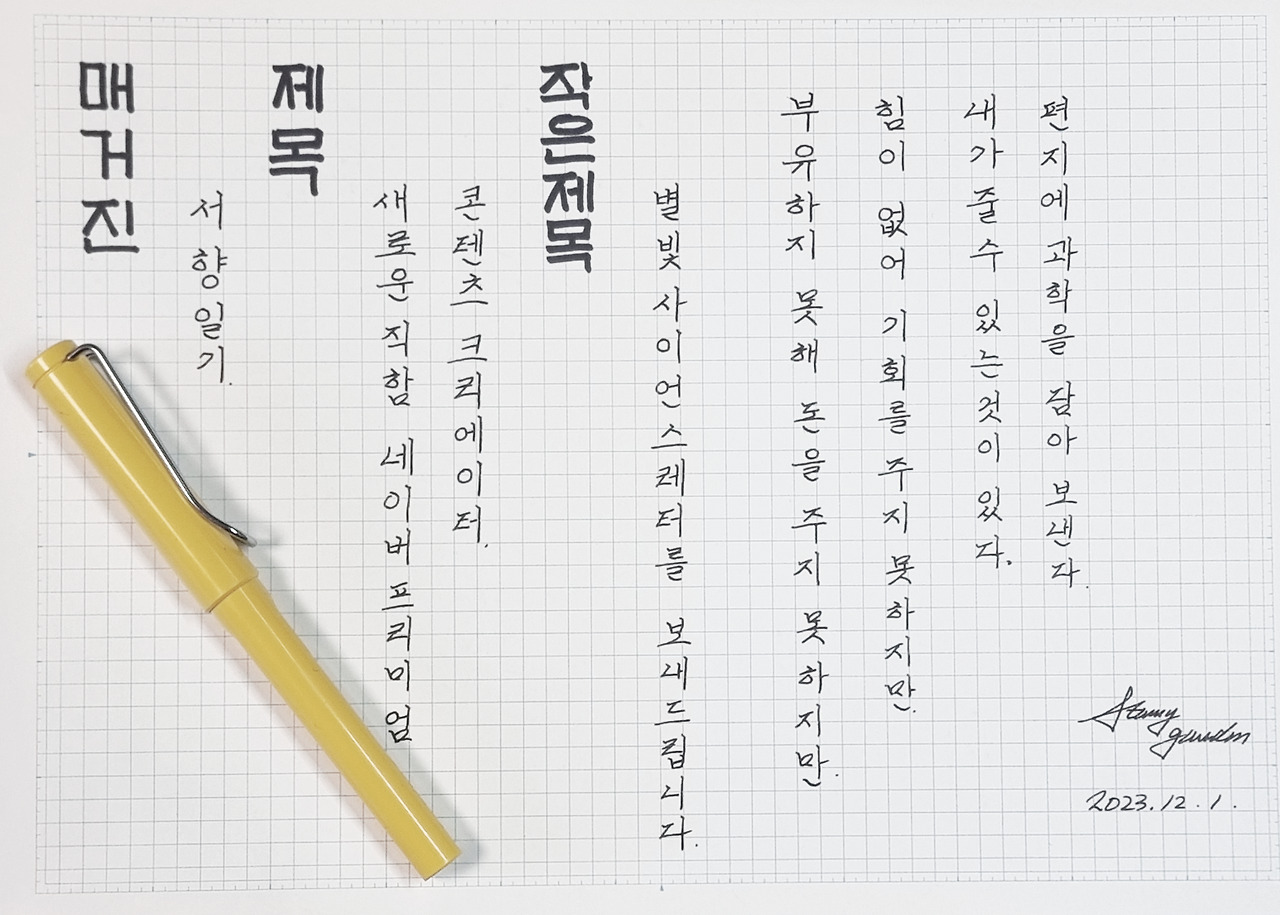 매거진
서향일기.
제목
새로운 직함 네이버 프리미엄
콘텐츠 크리에이터.
작은제목
별빛 사이언스레터를 보내드립니다.
부유하지 못해 돈을 주지 못하지만.
힘이 없어 기회를 주지 못하지만.
내가 줄 수 있는것이 있다.
편지에 과학을 담아 보낸다.
2023.12.1.